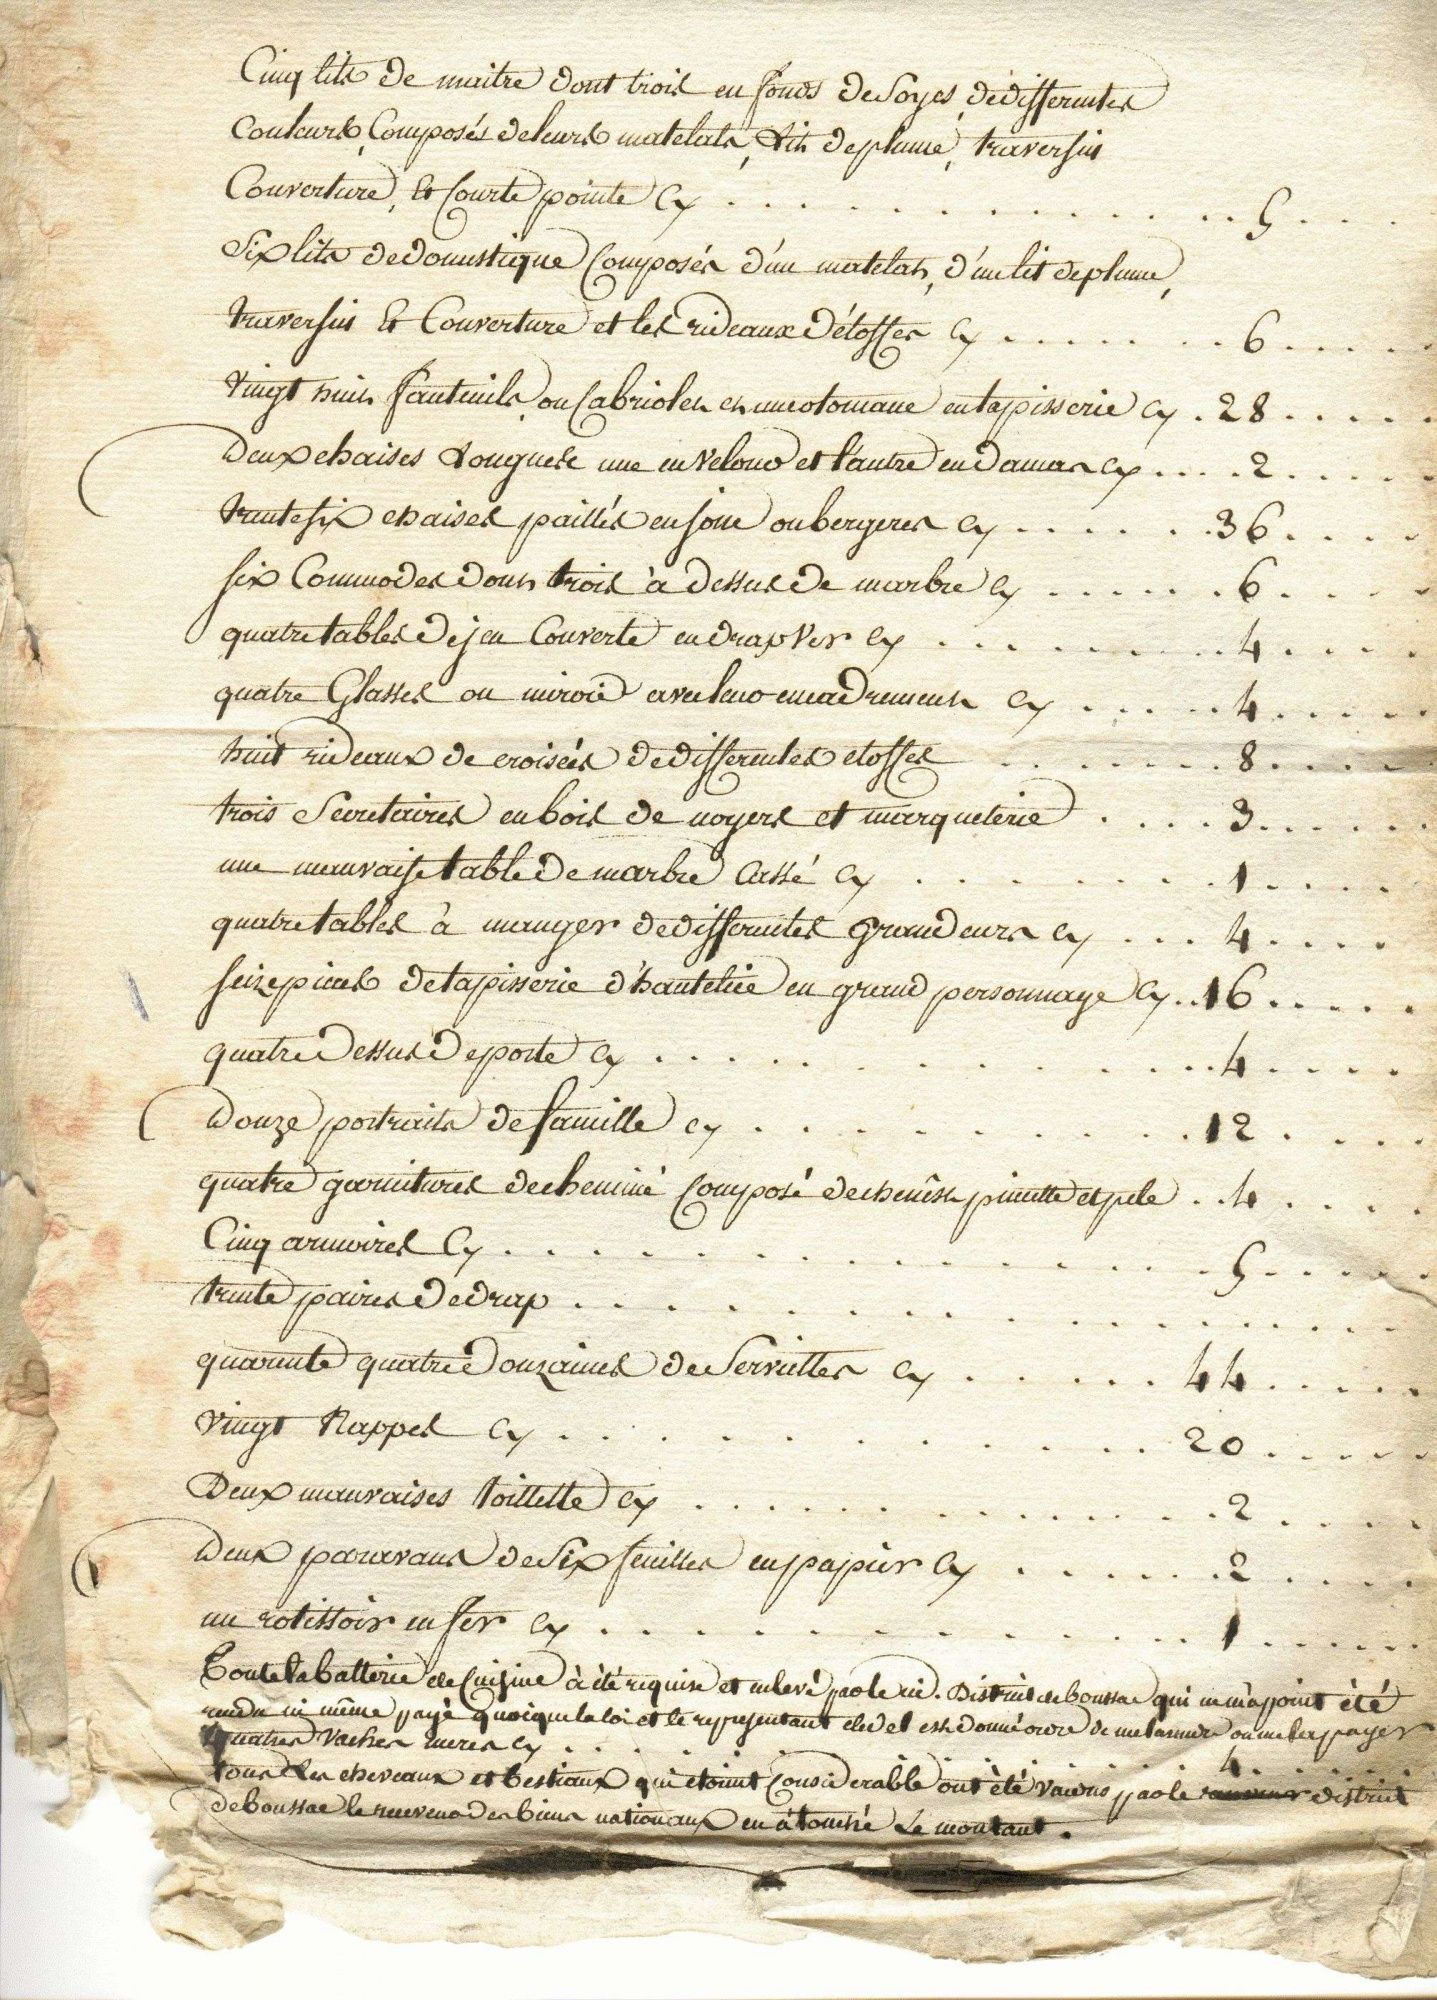 Cinq lits de maitre dont trois en fonds de Soyes, de differentes
couleurs, Composés de leurs matelats, lits de plume, traversin
Couverture, et Courte pointe Cy 5
Six lits de domestique Composés d'un matelats, d'un lit de plume,
traversin et Couverture et les rideaux d'étoffes Cy 6
vingt huit fauteuils ou Cabriolets en une otomane en tapisserie Cy 28
Deux chaises Longues une en velour et l'autre en damas Cy 2
trente six chaises paillés en jonc ou bergeres Cy 36
six Commodes dont trois à dessus de marbre Cy 6
quatre tables de jeu Couverte en drap Ver Cy 4
quatre Glasses ou miroir avec leur encadrement Cy 4
huit rideaux de croisées de differentes etoffes 8
trois Secretaires en bois de noyers et marqueterie 3
une mauvaise table de marbre Cassé Cy 1
quatre tables à manger de differentes grandeurs Cy 4
seize pieces de tapisserie d'hautelice en grand personnage Cy 16
quatre dessus de porte Cy 4
Douze portraits de famille Cy 12
quatre garnitures de cheminé Composé de chenêts pincette et pele 4
Cinq armoires Cy 5
trente paires de drap
quarente quatre Douzaines de Serviettes Cy 44
vingt Nappes Cy 20
Deux mauvaises toillette Cy 2
Deux paravans de Six feuilles en papier Cy 2
un rotissoir en fer Cy 1
Toute la batterie de Cuisine à été requise et enlevé par le District de boussac qui ne m'a point été
rendu ni même payé quoique la loi et le representant ont donné ordre de me la payer
quatres Vaches meres Cy 4
tous les cheveaux et bestiaux qui étoint Considerable ont été vendus par le district
de boussac le receveur des biens nationaux en à touché Le montant.